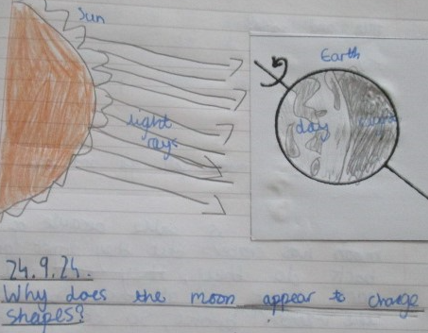 Sun
Earth
light
rays
day
24.9.24.
Why does the moon appear to change
shapes?